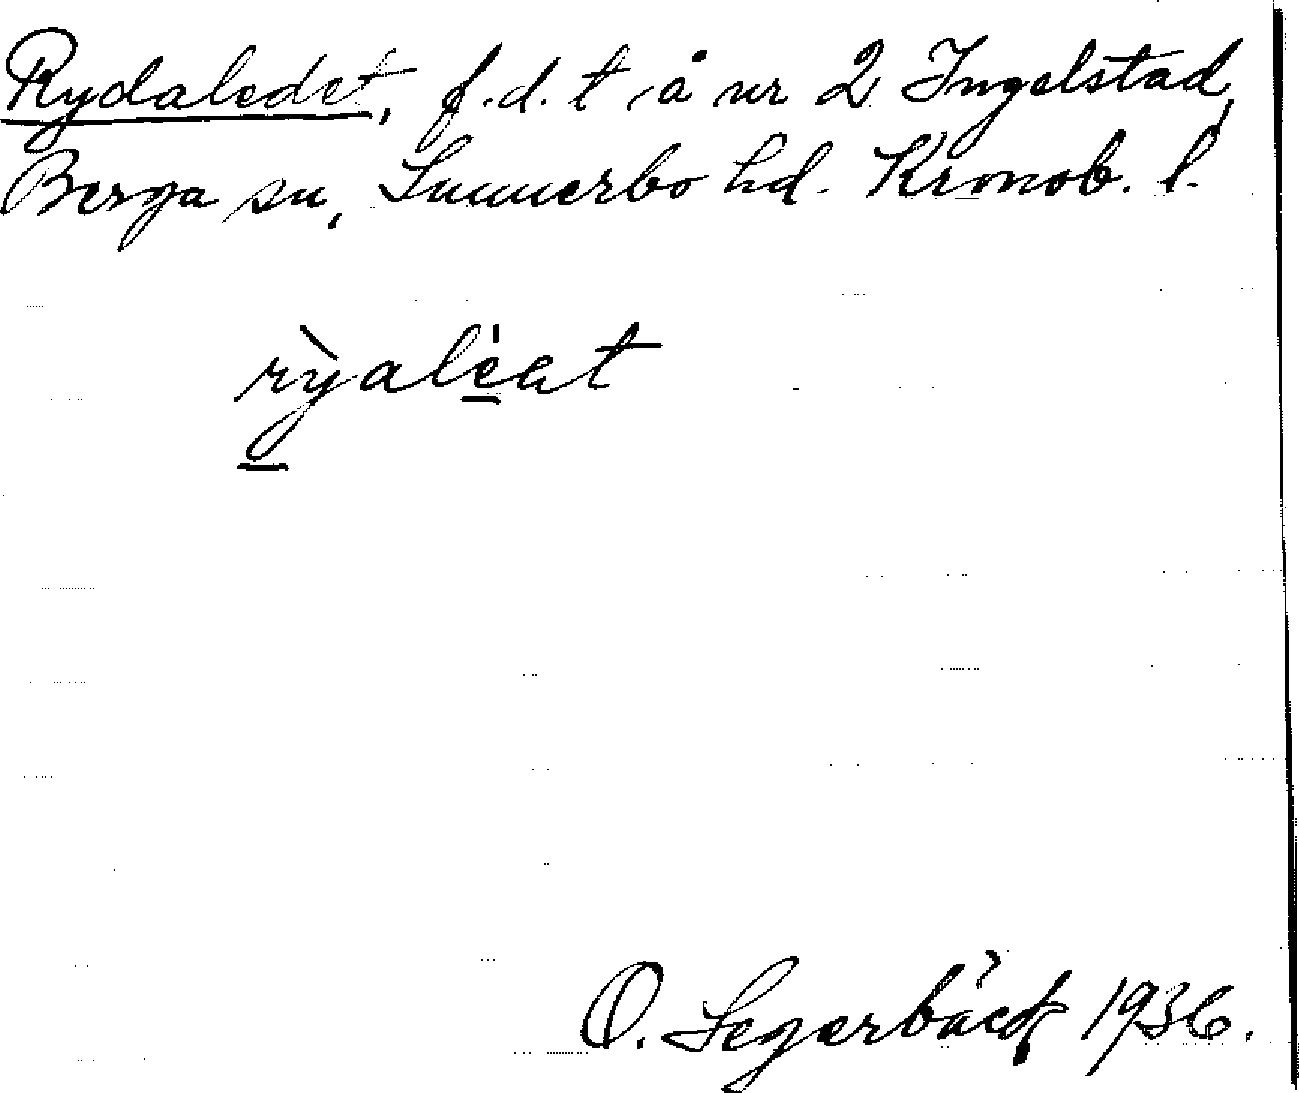 Rydaledet, f.d. t, å nr 2 Ingelstad,
Berga sn, Sunnerbo hd. Kronob. l.
rỳalèat
O. Segerbäck 1936.